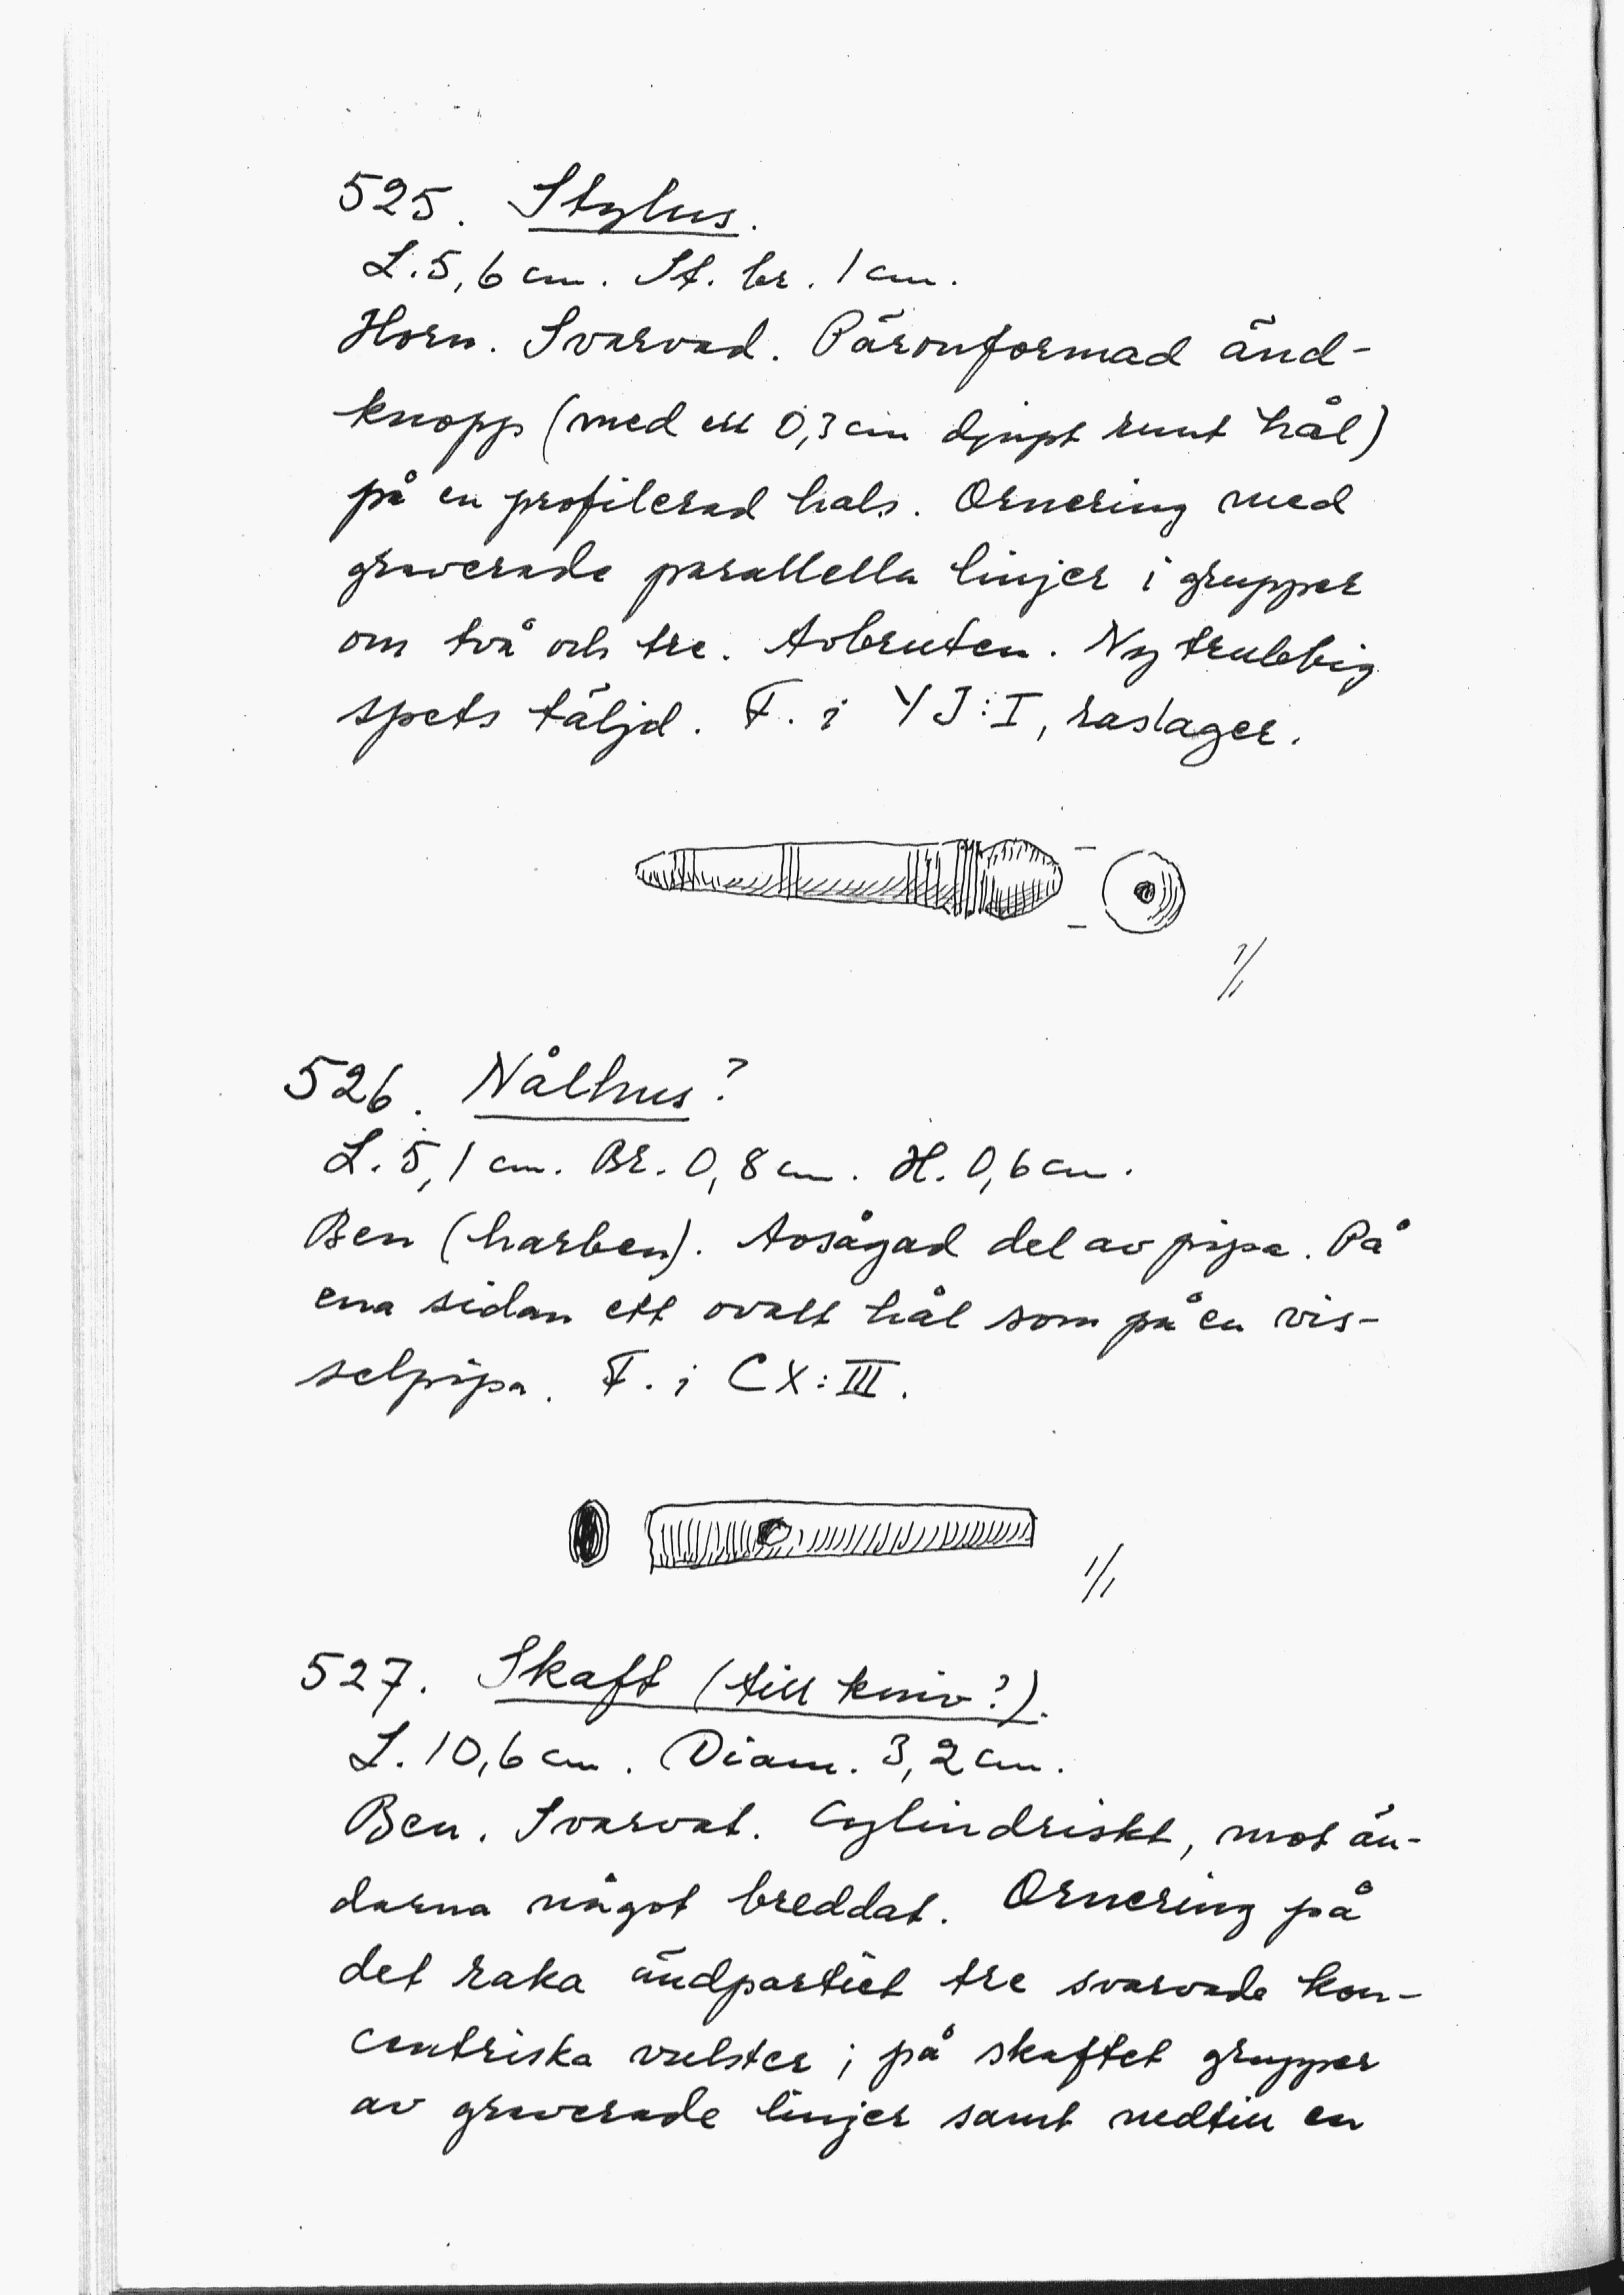 525. Stylus.
L. 5,6 cm. St. br. 1 cm.
Horn. Svarvad. Päronformad änd-
knopp (med ett 0,3 cm djupt runt hål)
på en profilerad hals. Ornering med
graverade parallella linjer i grupper
om två och tre. Avbruten. Ny trubbig
spets täljd. F. i YJ:I, raslager.
1/1
526. Nålhus?
L. 5,1 cm. Br. 0,8 cm. H. 0,6 cm.
Ben (harben). Avsågad del av pipa. På
ena sidan ett ovalt hål som på en vis-
selpipa. F. i CX:III.
1/1
527. Skaft (till kniv?).
L. 10,6 cm. Diam. 3,2 cm.
Ben. Svarvat. Cylindriskt, mot än-
darna något breddat. Ornering på
det raka ändpartiet tre svarvade kon-
centriska vulster; på skaftet grupper
av graverade linjer samt nedtill en